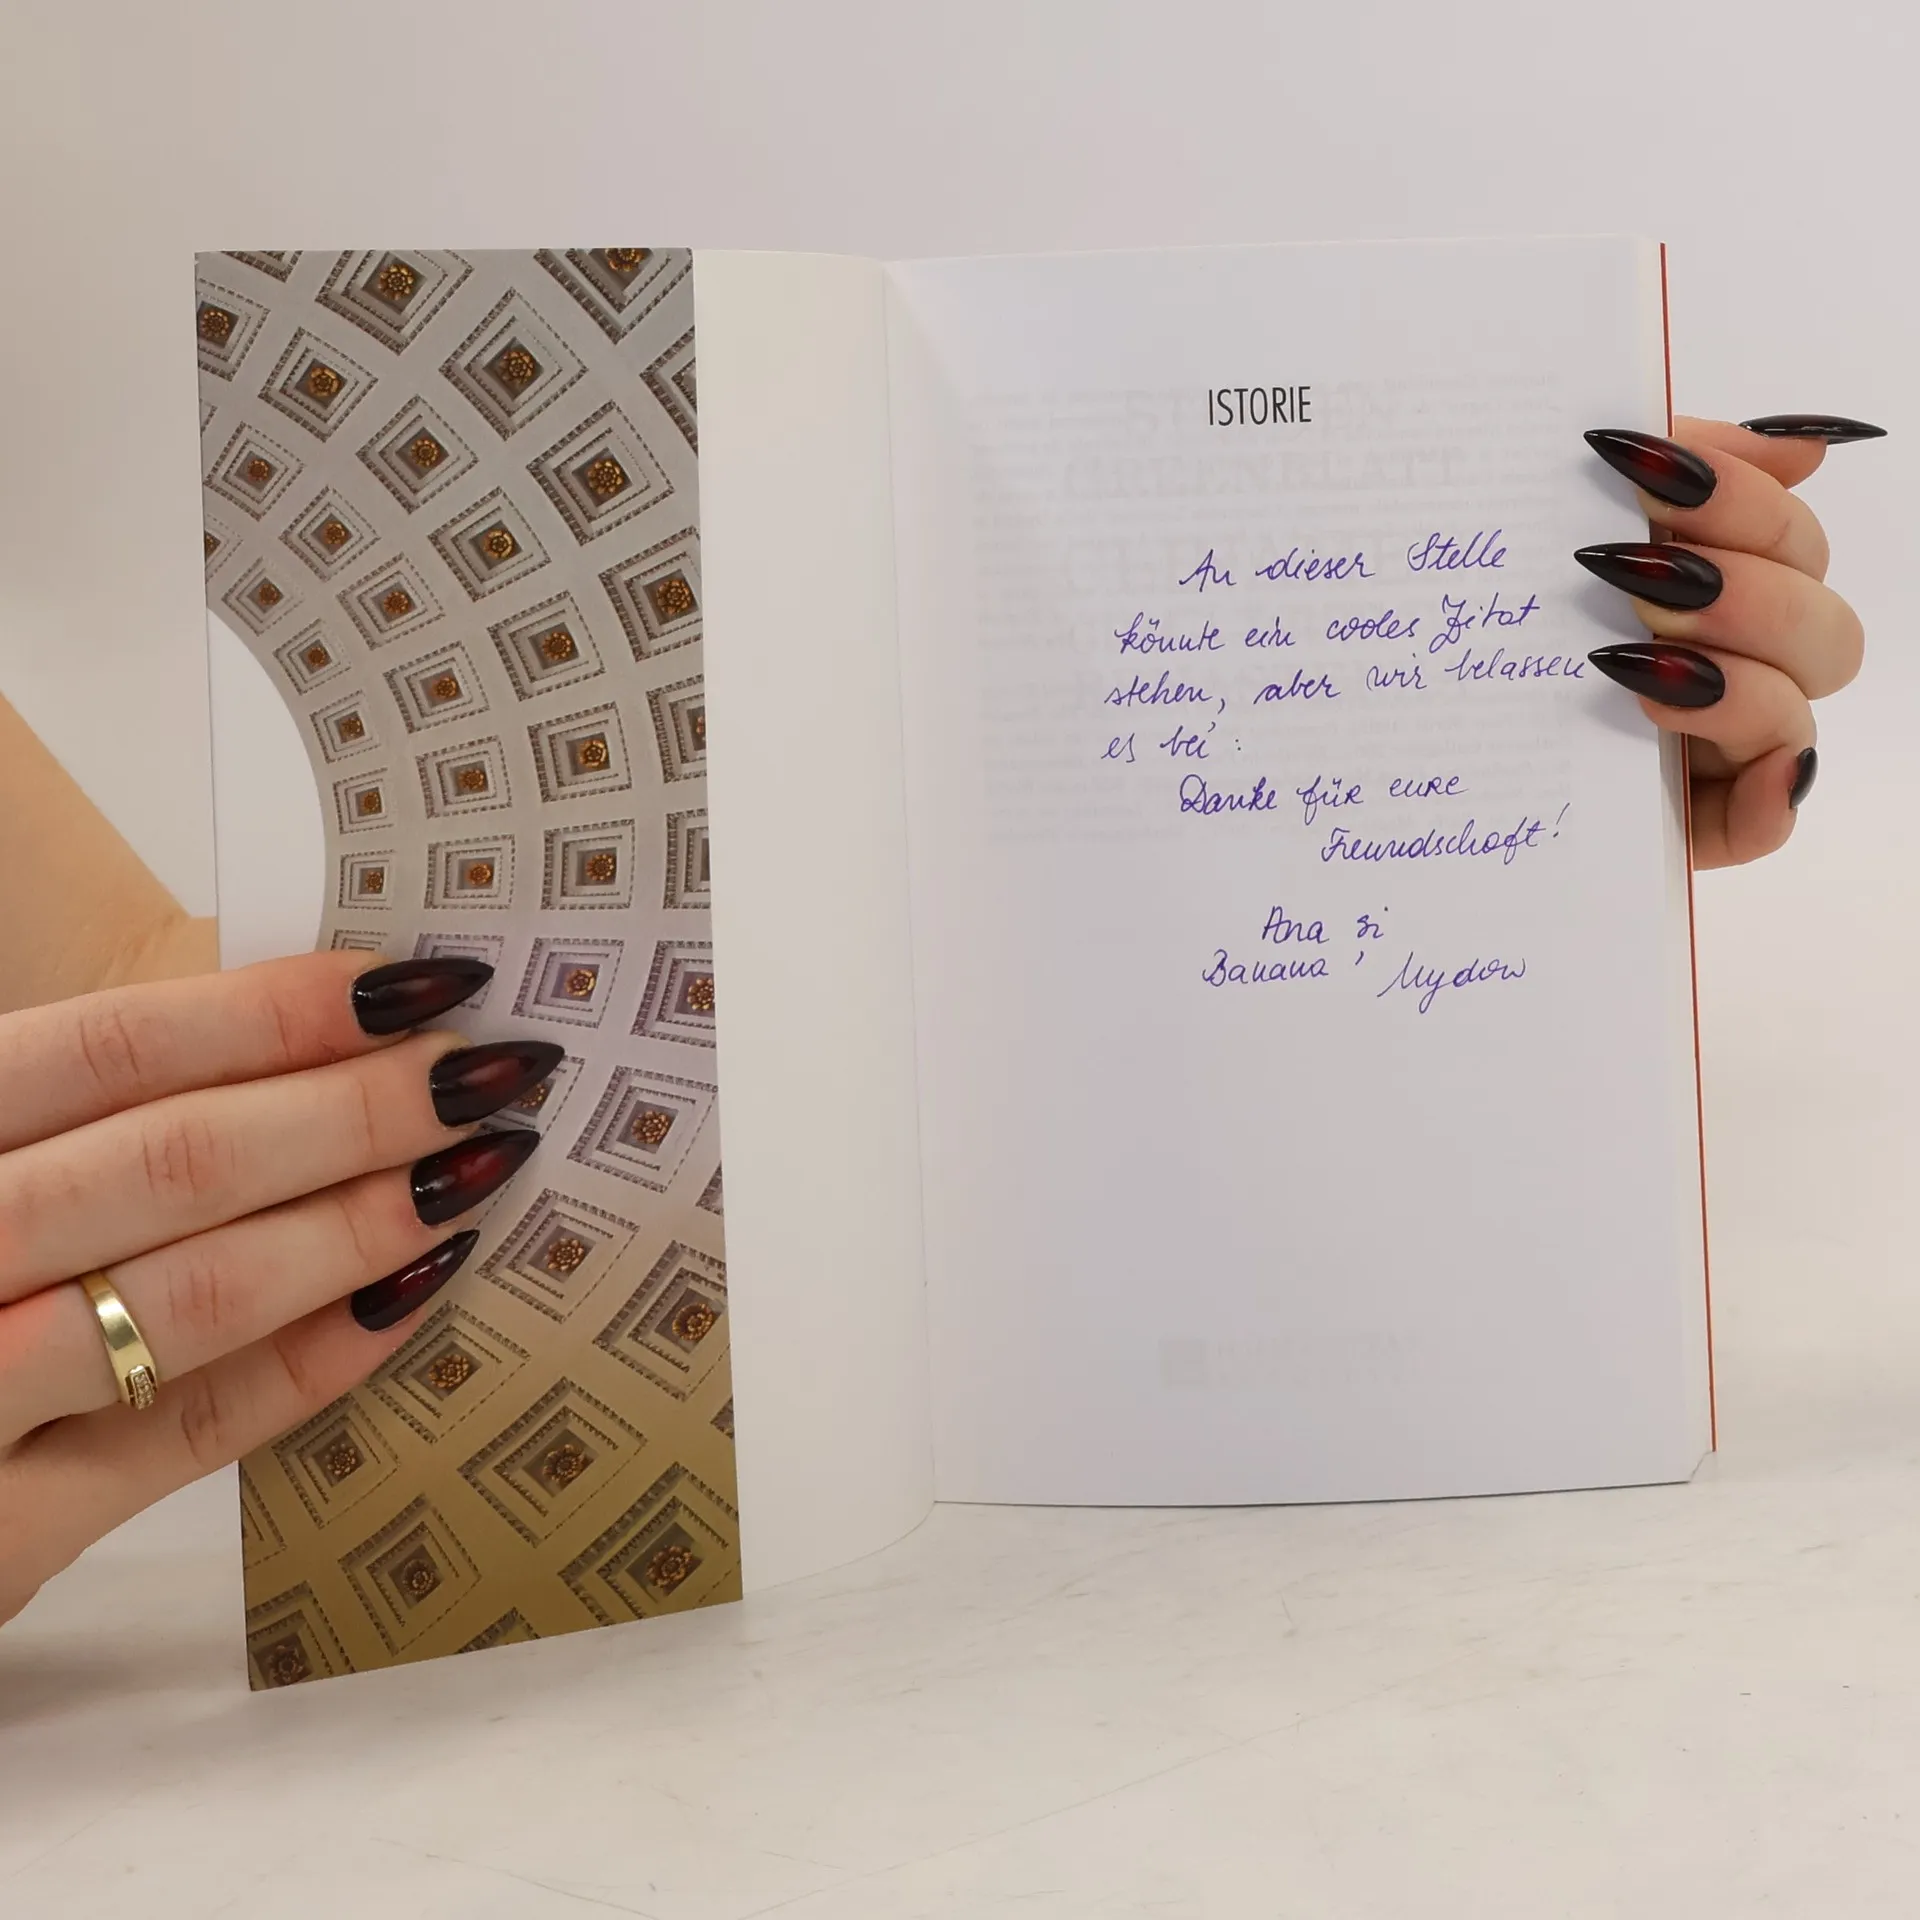 ISTORIE
An dieser Stelle
könnte ein cooles Zitat
stehen, aber wir belassen
es bei:
Danke für eure
Freundschaft!
Ana și
Banana